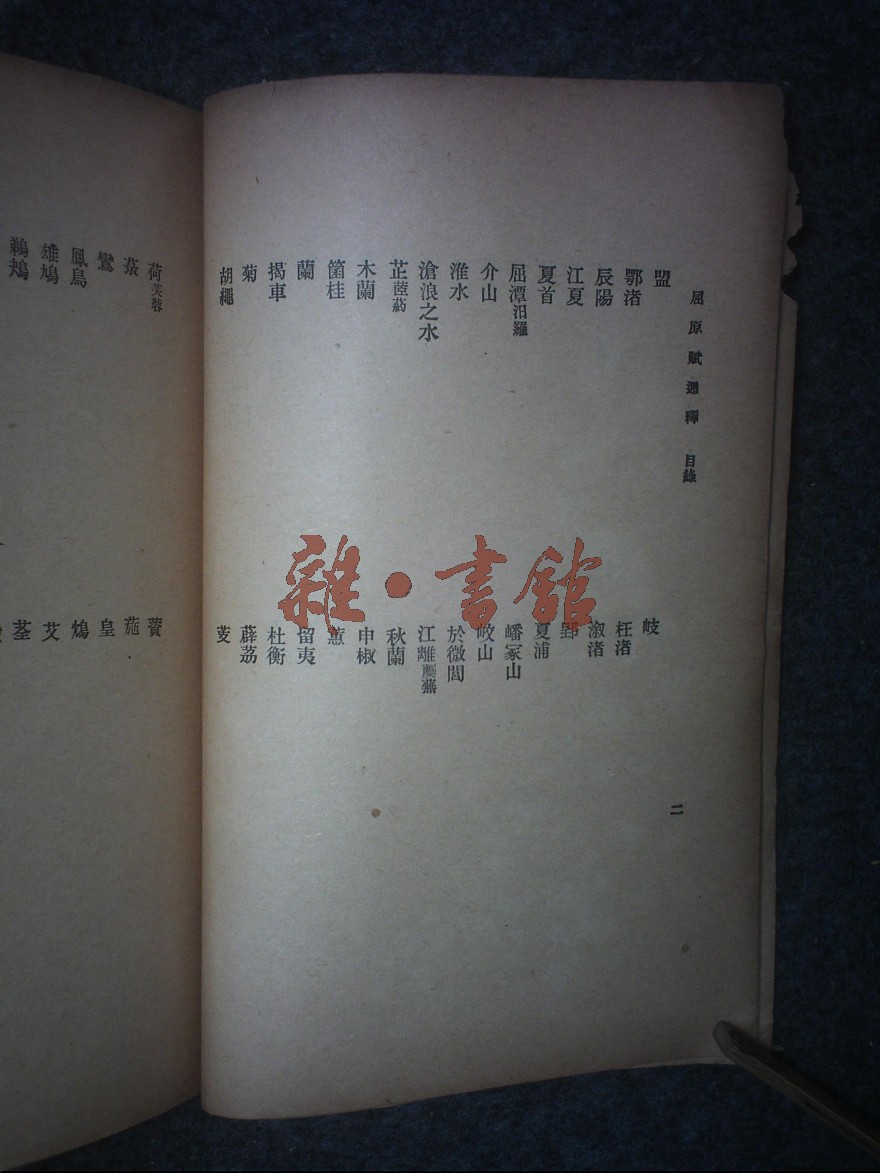 屈原賦通釋 目錄
二
盟
岐
鄂渚
枉渚
辰陽
溆渚
江夏
郢
夏首
夏浦
屈潭汨羅
嶓冢山
介山
㟭山
淮水
於微閭
滄浪之水
江離蘪蕪
芷茝葯
秋蘭
木蘭
申椒
箘桂
蕙
蘭
留夷
揭車
杜衡
菊
薜荔
胡繩
芰
荷芙蓉
薋
菉
葹
鸞
皇
鳳鳥
鴆
雄鳩
艾
鵜鴂
荃
雜·書館